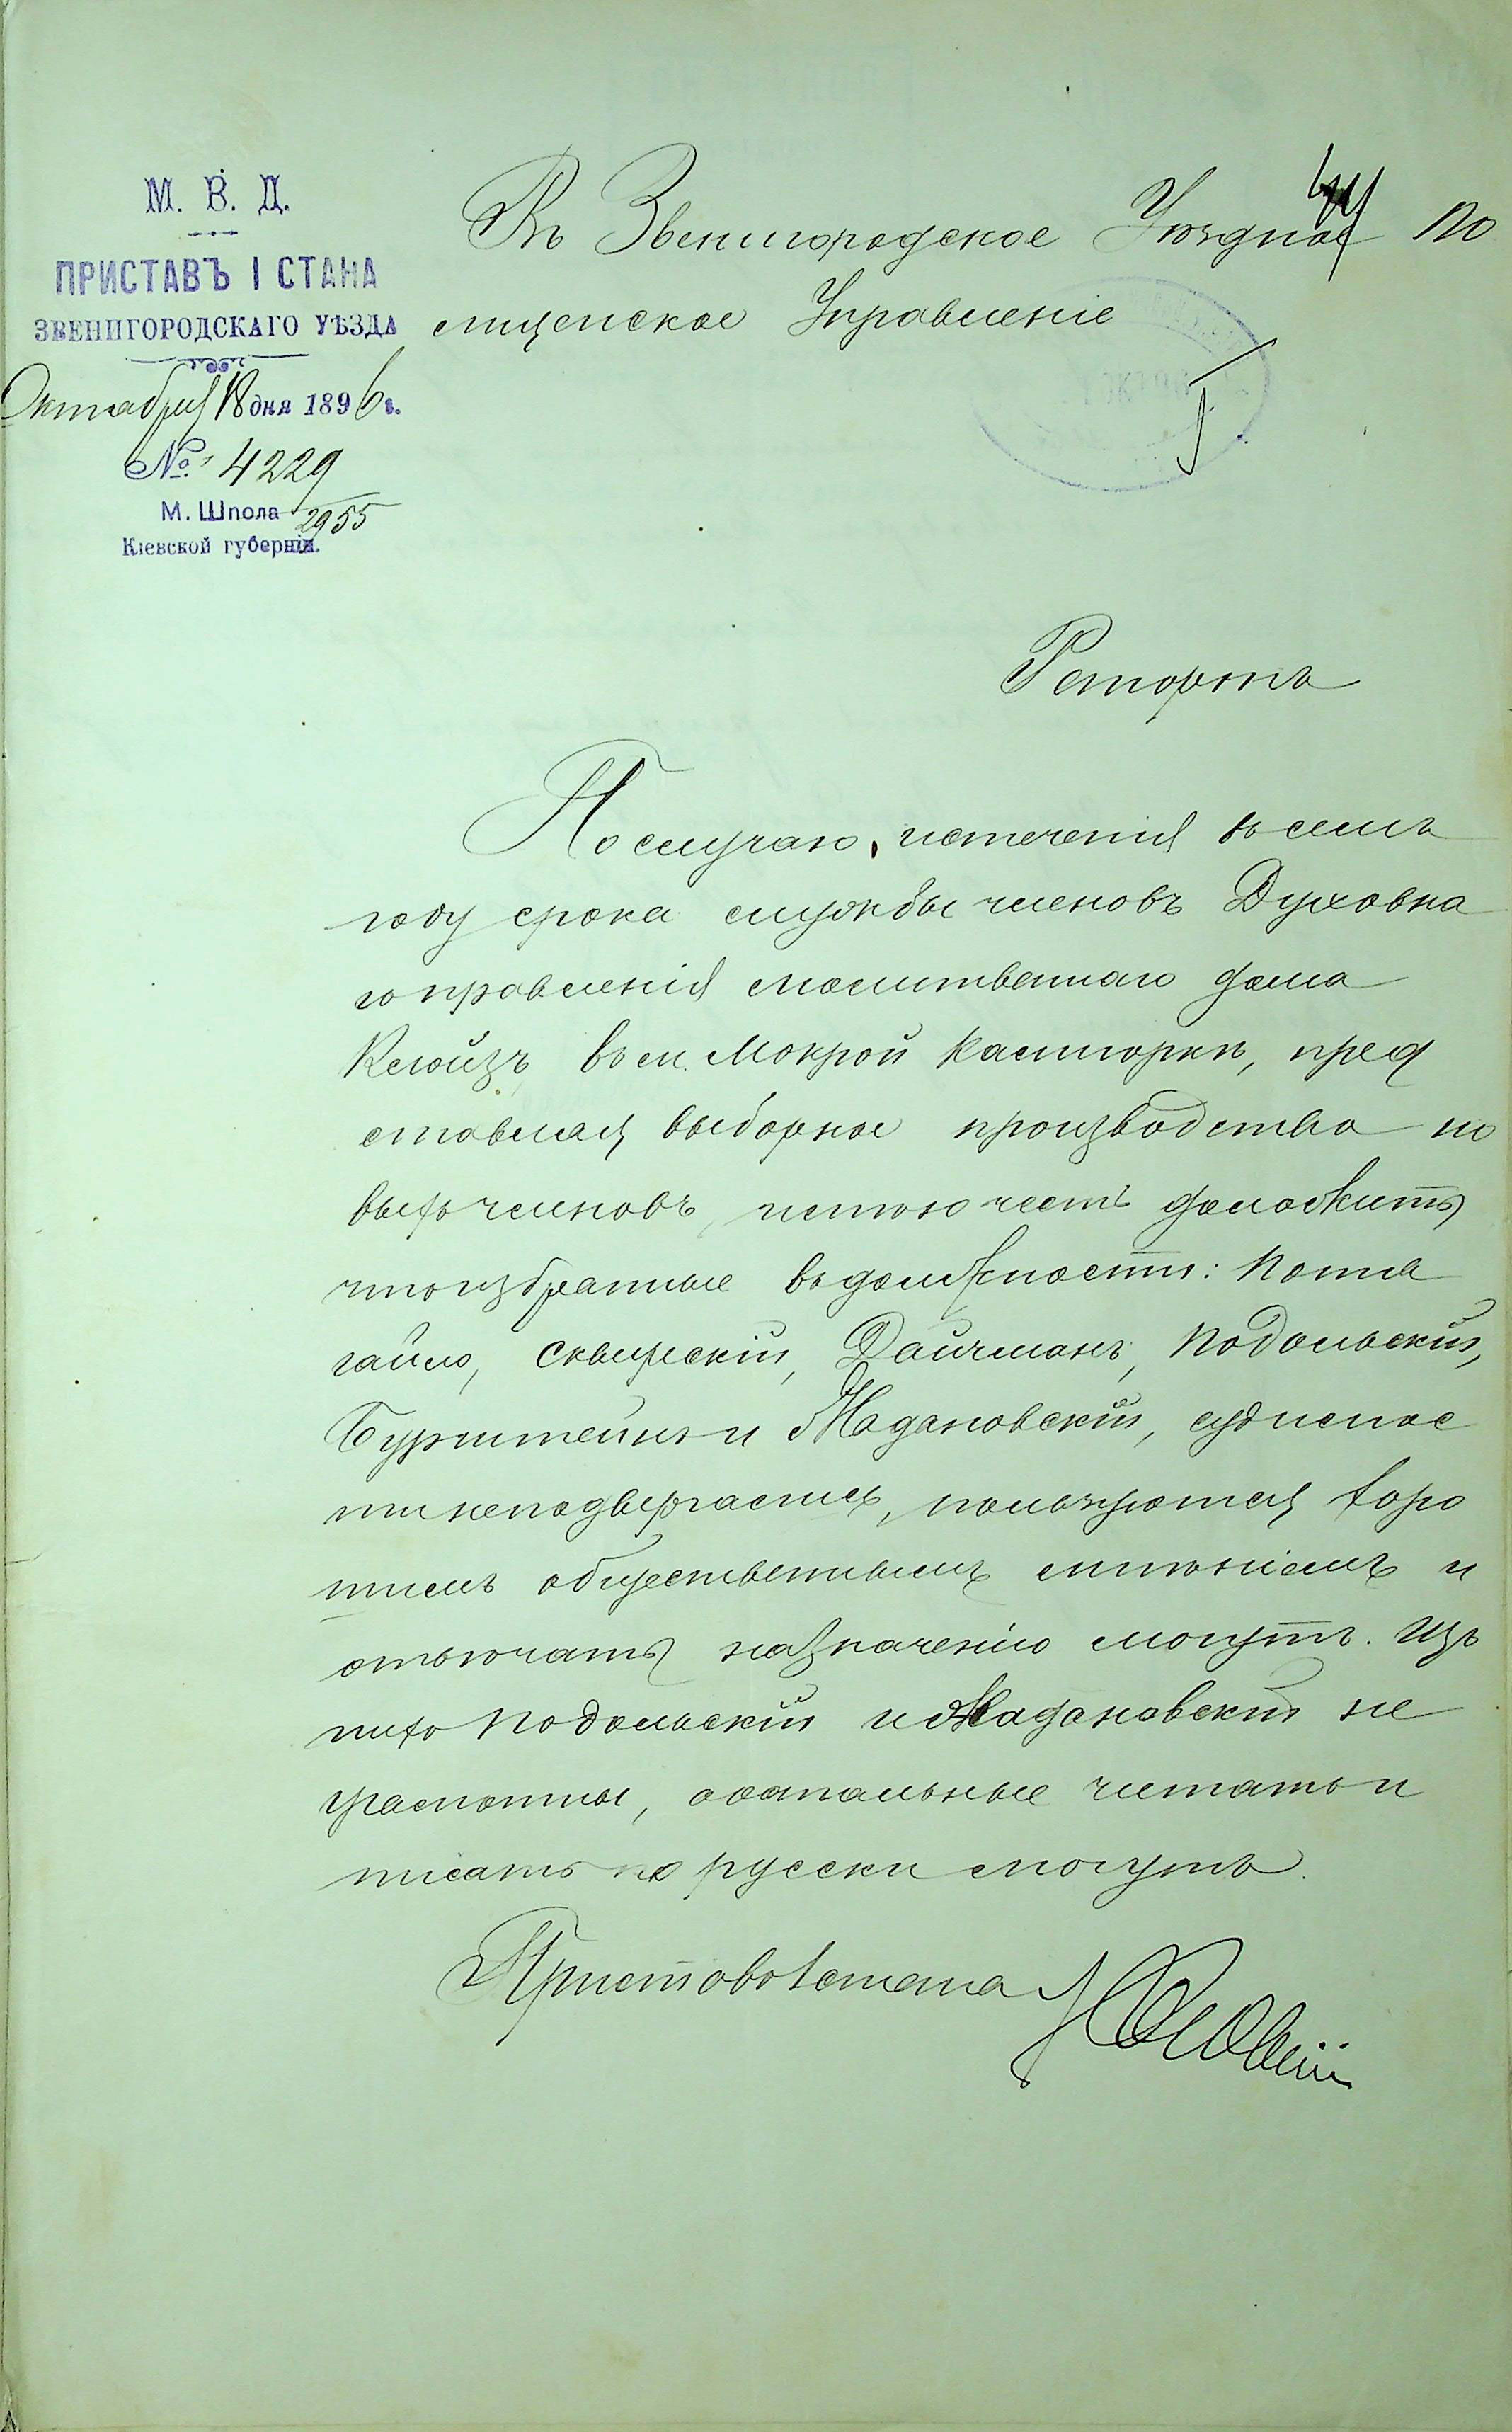 М. В. Д.
ПРИСТАВЪ I СТАНА
ЗВЕНИГОРОДСКАГО УѢЗДА
Октября 18 дня 1896 г.
№ 4229
2955
М. Шпола
Кіевской губерніи.
Въ Звенигородское Уѣздное По
лицейское Управленіе
Рапортъ
По случаю истеченія въ семъ
году срока службы членовъ Духовна
го правленія молитвеннаго дома
Клойзъ въ м. Мокрой Калигоркѣ, пред
ставляя выборное производство но
выхъ членовъ, имѣю честь доложить
что избранные въ должности: Потя
гайло, Сквирскій, Дайчманъ, Подольскій,
Бурштейнъ и Мадановскій, судимос
ти неподвергались, пользуются хоро
шимъ общественнымъ мнѣніемъ и
отвѣчать назначенію могутъ. Изъ
нихъ Подольскій и Мадановскій не
грамотны, остальные читать и
писать по русски могутъ.
Приставъ 1 стана